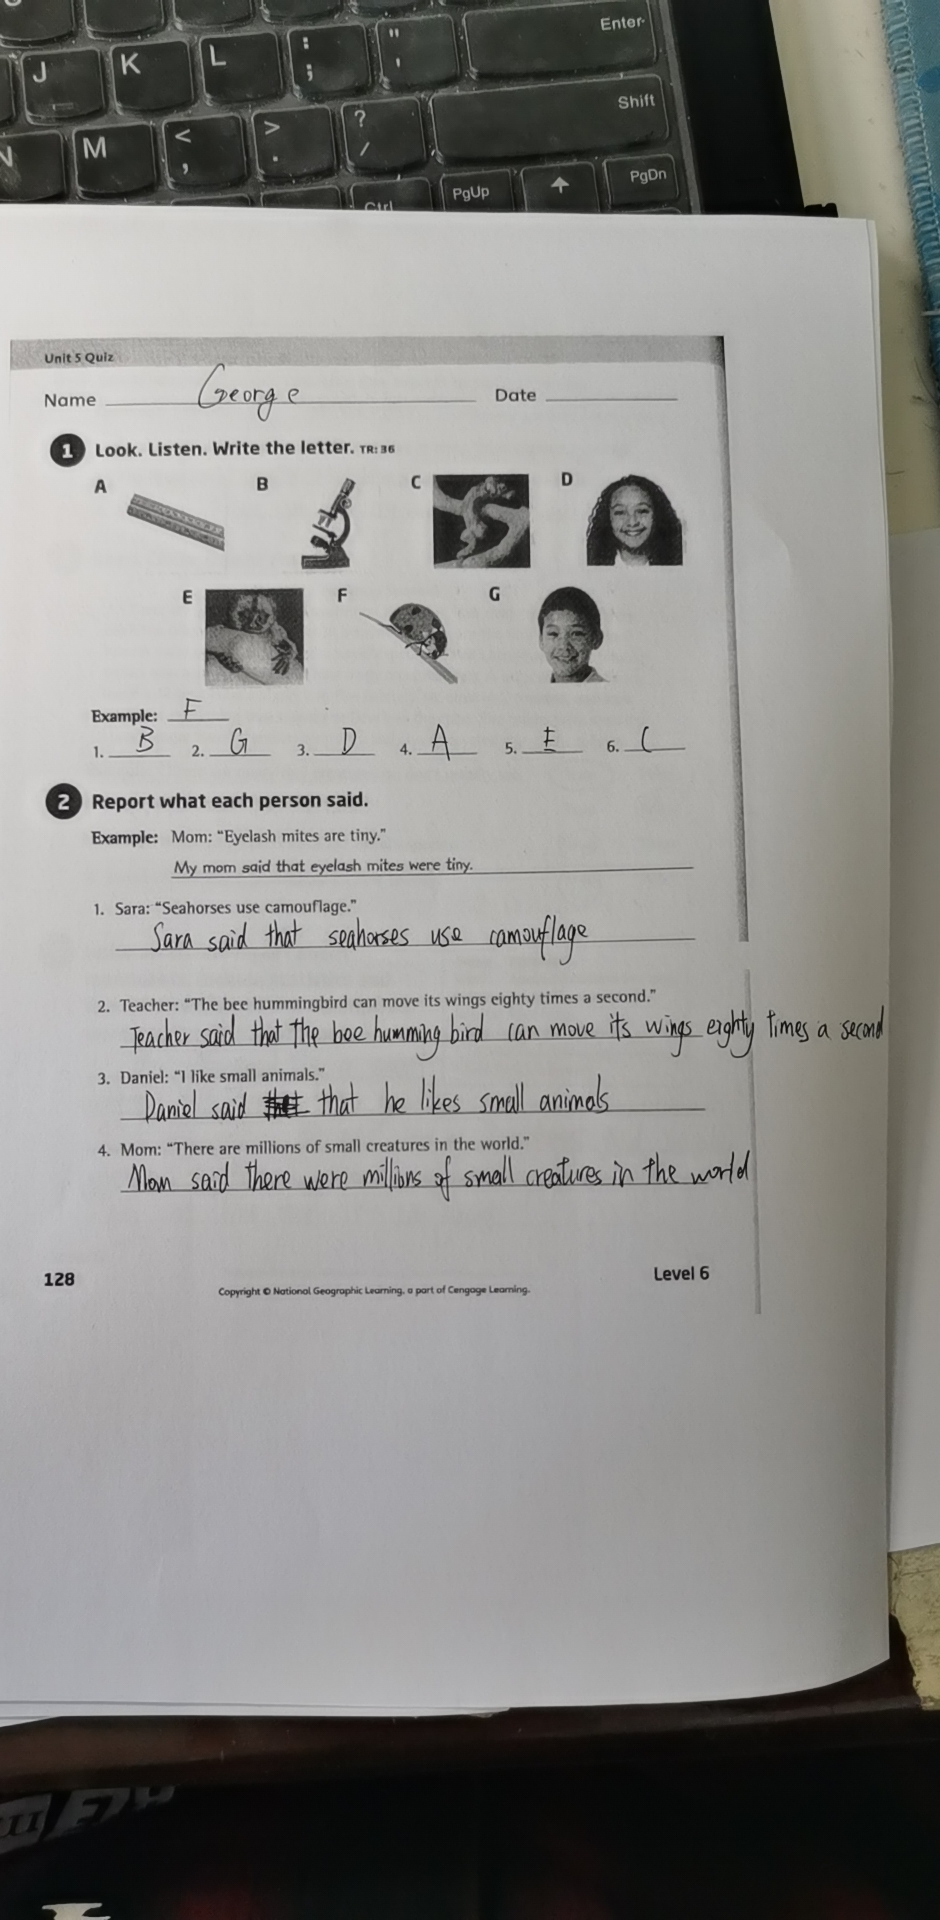 Enter
J K L : ; " '
Shift
N M < , > . ? /
PgUp PgDn
Ctrl
Unit 5 Quiz
Name George Date
1 Look. Listen. Write the letter. TR: 36
A B C D
E F G
Example: F
1. B 2. G 3. D 4. A 5. E 6. C
2 Report what each person said.
Example: Mom: “Eyelash mites are tiny.”
My mom said that eyelash mites were tiny.
1. Sara: “Seahorses use camouflage.”
Sara said that seahorses use camouflage
2. Teacher: “The bee hummingbird can move its wings eighty times a second.”
Teacher said that the bee humming bird can move its wings eighty times a second
3. Daniel: “I like small animals.”
Daniel said that he likes small animals
4. Mom: “There are millions of small creatures in the world.”
Mom said there were millions of small creatures in the world
128 Level 6
Copyright © National Geographic Learning, a part of Cengage Learning.